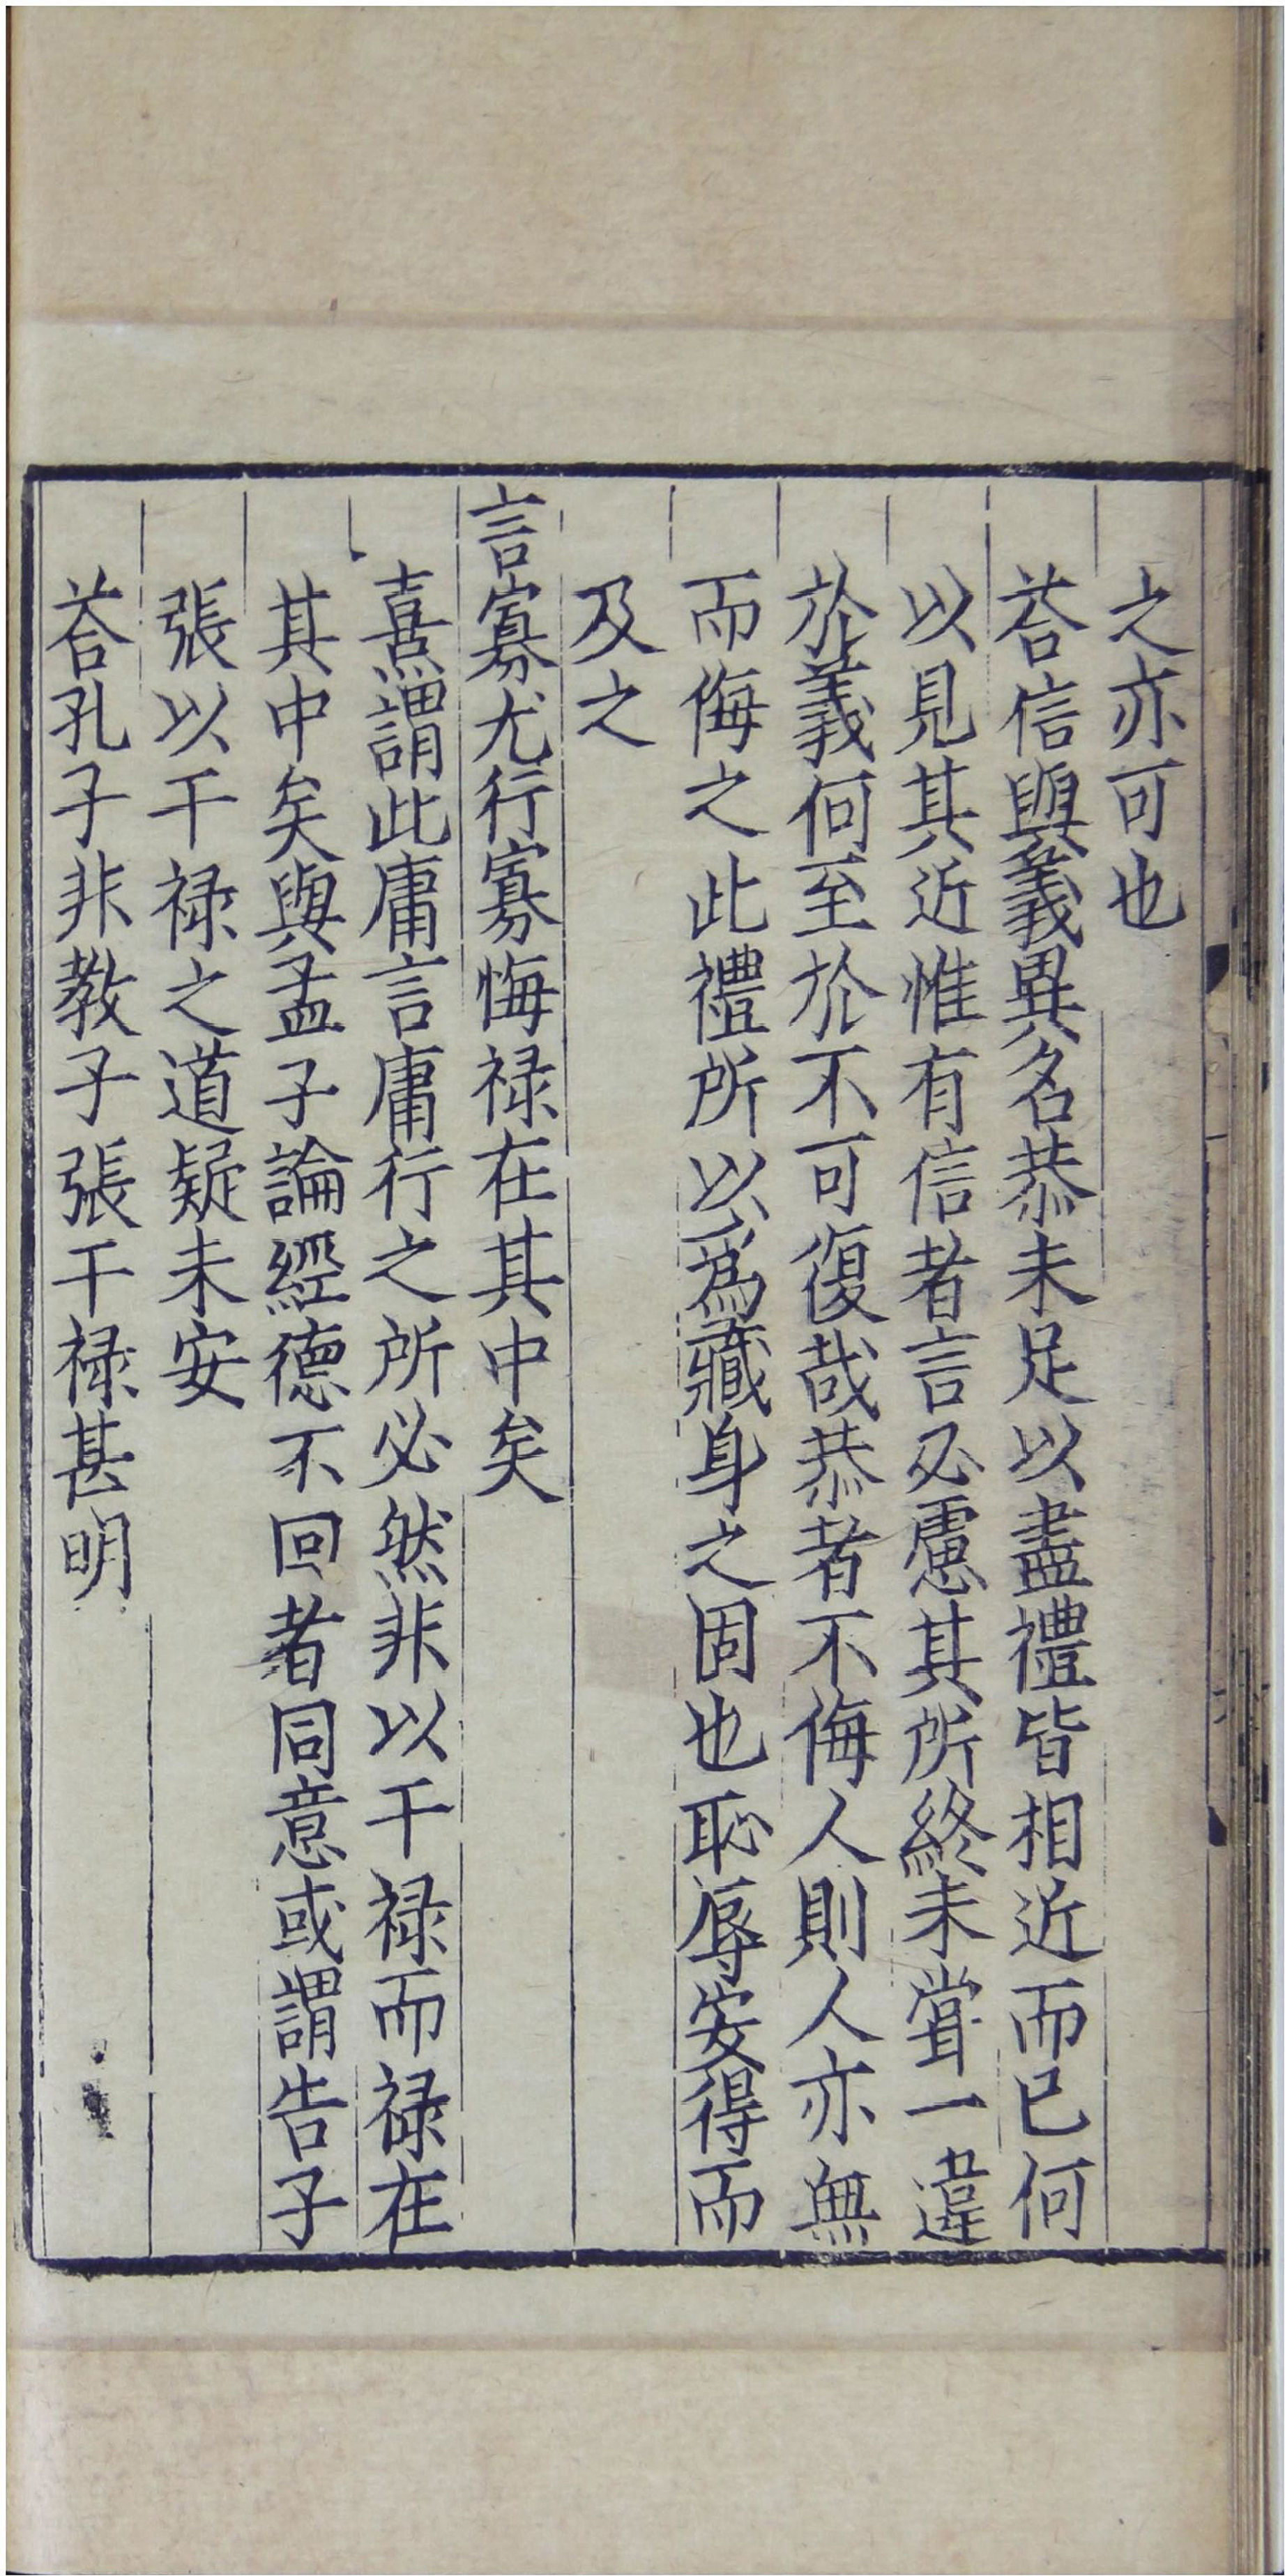 之亦可也
荅信與義異名恭未足以盡禮皆相近而已何
以見其近惟有信者言必慮其所終未嘗一違
於義何至於不可復哉恭者不侮人則人亦無
而侮之此禮所以爲藏身之固也恥辱安得而
及之
言寡尤行寡悔禄在其中矣
熹謂此庸言庸行之所必然非以干禄而禄在
其中矣與孟子論經德不回者同意或謂告子
張以干禄之道疑未安
荅孔子非教子張干禄甚明